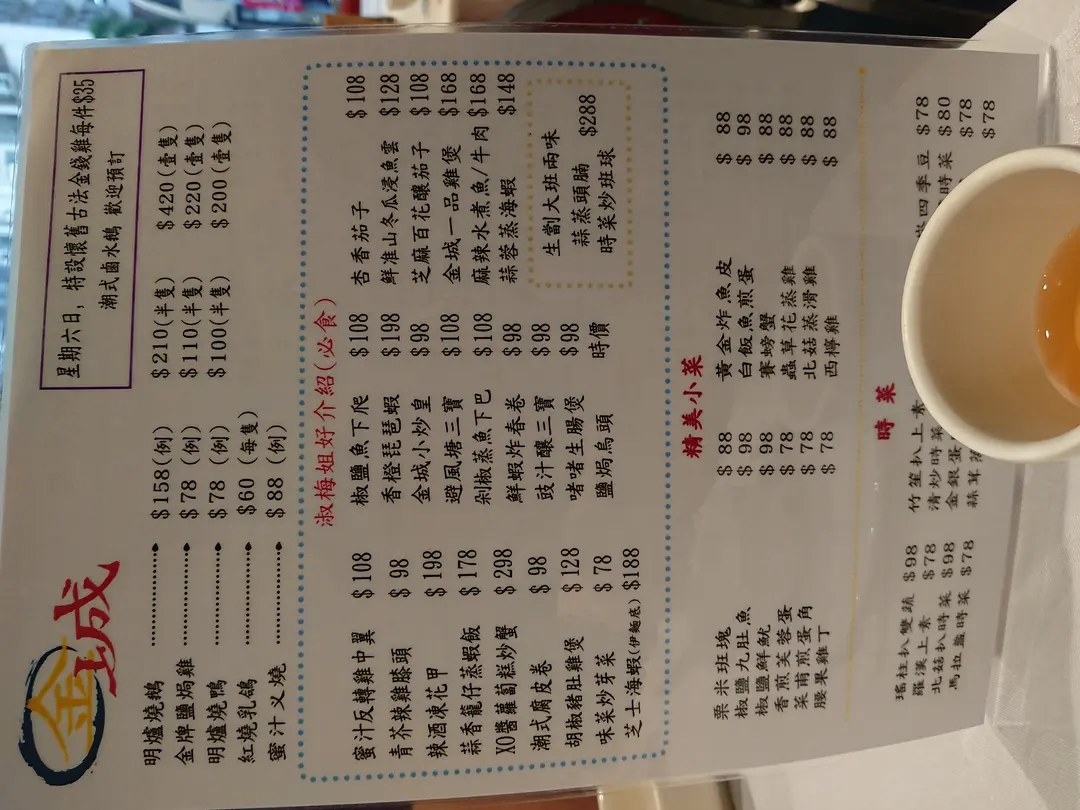 金城
星期六日，特設懷舊古法金錢雞每件$35
潮式鹵水鵝 歡迎預訂
明爐燒鵝 $158(例) $210(半隻) $420(壹隻)
金牌鹽焗雞 $78(例) $110(半隻) $220(壹隻)
明爐燒鴨 $78(例) $100(半隻) $200(壹隻)
紅燒乳鴿 $60(每隻)
蜜汁义燒 $88(例)
淑梅姐好介紹(必食)
蜜汁反轉雞中翼 $108
青芥辣雞膝頭 $98
辣酒凍花甲 $198
蒜香籠仔蒸蝦飯 $178
XO醬蘿蔔糕炒蟹 $298
潮式腐皮卷 $98
胡椒豬肚雞煲 $128
味菜炒芽菜 $78
芝士海蝦(伊麵底) $188
椒鹽魚下爬 $108
香橙琵琶蝦 $198
金城小炒皇 $98
避風塘三寶 $108
剁椒蒸魚下巴 $108
鮮蝦炸春卷 $98
豉汁釀三寶 $98
啫啫生腸煲 $98
鹽焗烏頭 時價
杏香茄子 $108
鮮淮山冬瓜浸魚雲 $128
芝麻百花釀茄子 $108
金城一品雞煲 $168
麻辣水煮魚/牛肉 $168
蒜蓉蒸海蝦 $148
生劏大班兩味
蒜蒸頭腩 $288
時菜炒班球
精美小菜
粟米班塊 $88
椒鹽九肚魚 $98
椒鹽鮮魷 $98
香煎芙蓉蛋 $78
菜甫煎蛋角 $78
腰果雞丁 $78
黃金炸魚皮 $88
白飯魚煎蛋 $98
賽螃蟹 $88
蟲草花蒸雞 $88
北菇蒸滑雞 $88
西檸雞 $88
時菜
瑤柱扒雙蔬 $98
羅漢上素 $78
北菇扒時菜 $98
馬拉盞時菜 $78
竹笙扒上素
清炒時菜
金銀蛋
蒜茸蒸
四季豆 $78
時菜 $80
$78
$78